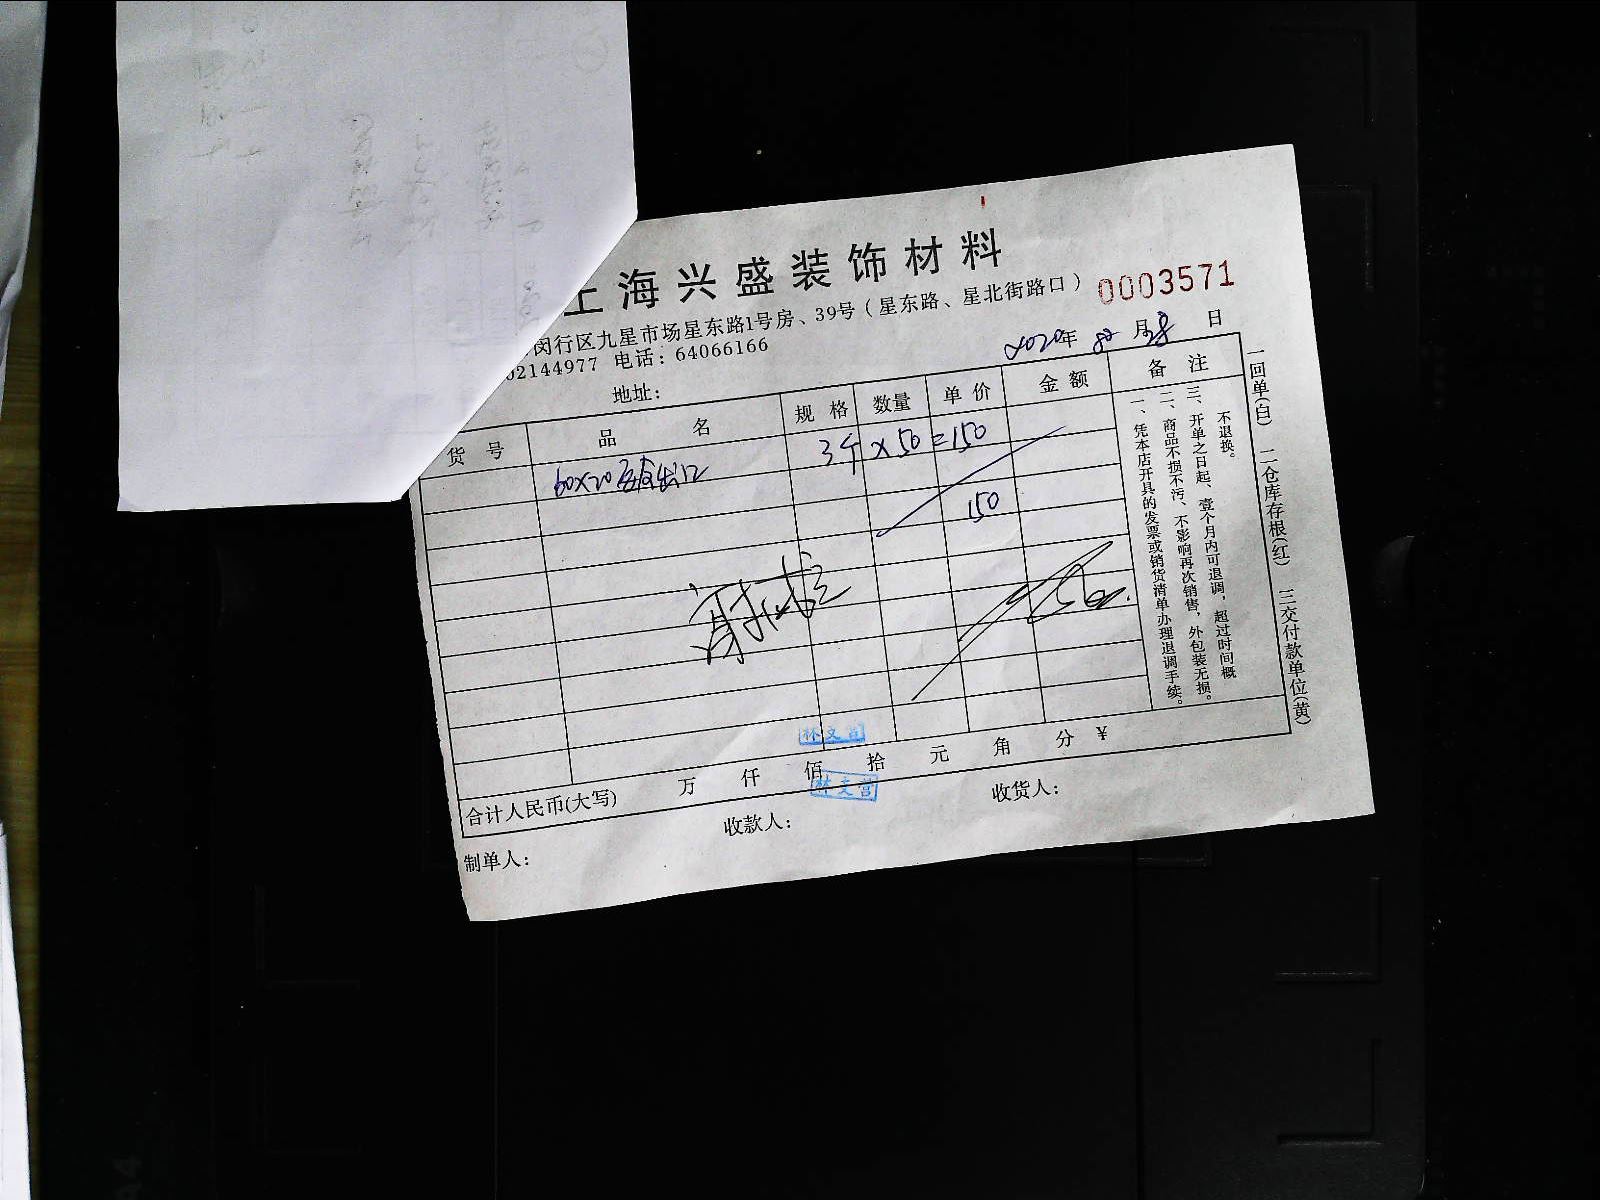 上海兴盛装饰材料
闵行区九星市场星东路1号房、39号（星东路、星北街路口）
0003571
02144977 电话：64066166
2020年 月28日
地址：
货号 品名 规格 数量 单价 金额 备注
60×20 3个×50=150
150
一、凭本店开具的发票或销货清单办理退调手续。
二、商品不损不污、不影响再次销售，外包装无损。
三、开单之日起、壹个月内可退调，超过时间概
不退换。
一回单(白) 二仓库存根(红) 三交付款单位(黄)
林文营
合计人民币(大写) 万 仟 佰 拾 元 角 分 ¥
林文营
制单人： 收款人： 收货人：